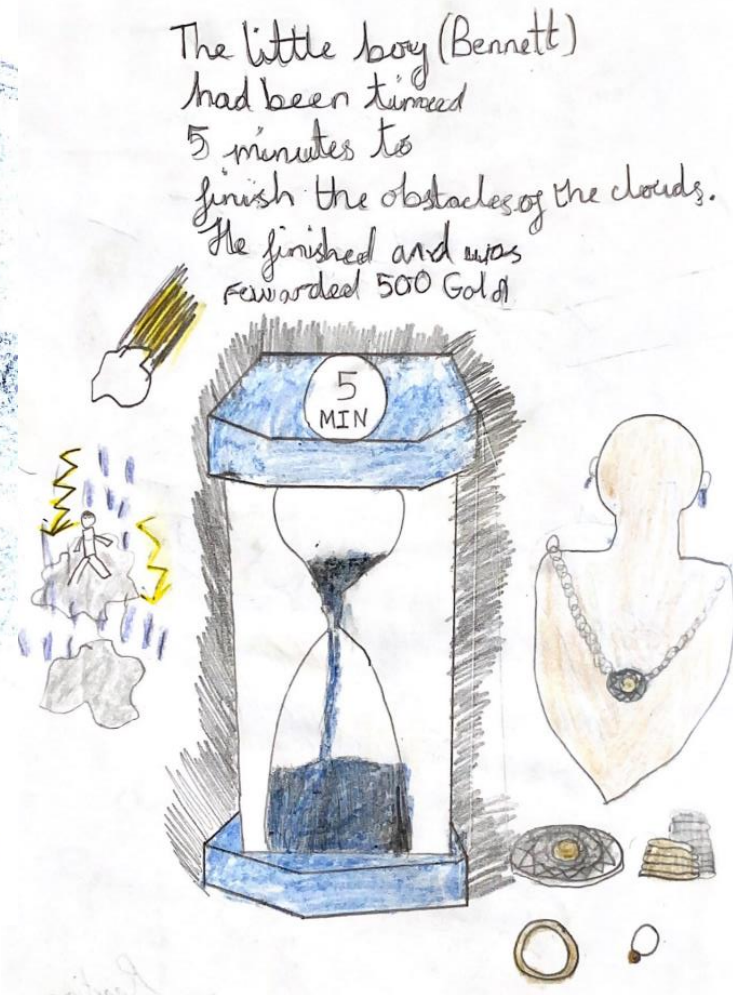 The little boy (Bennett)
had been timeed
5 minutes to
finish the obstacles of the clouds.
He finished and was
rewarded 500 Gold
5
MIN